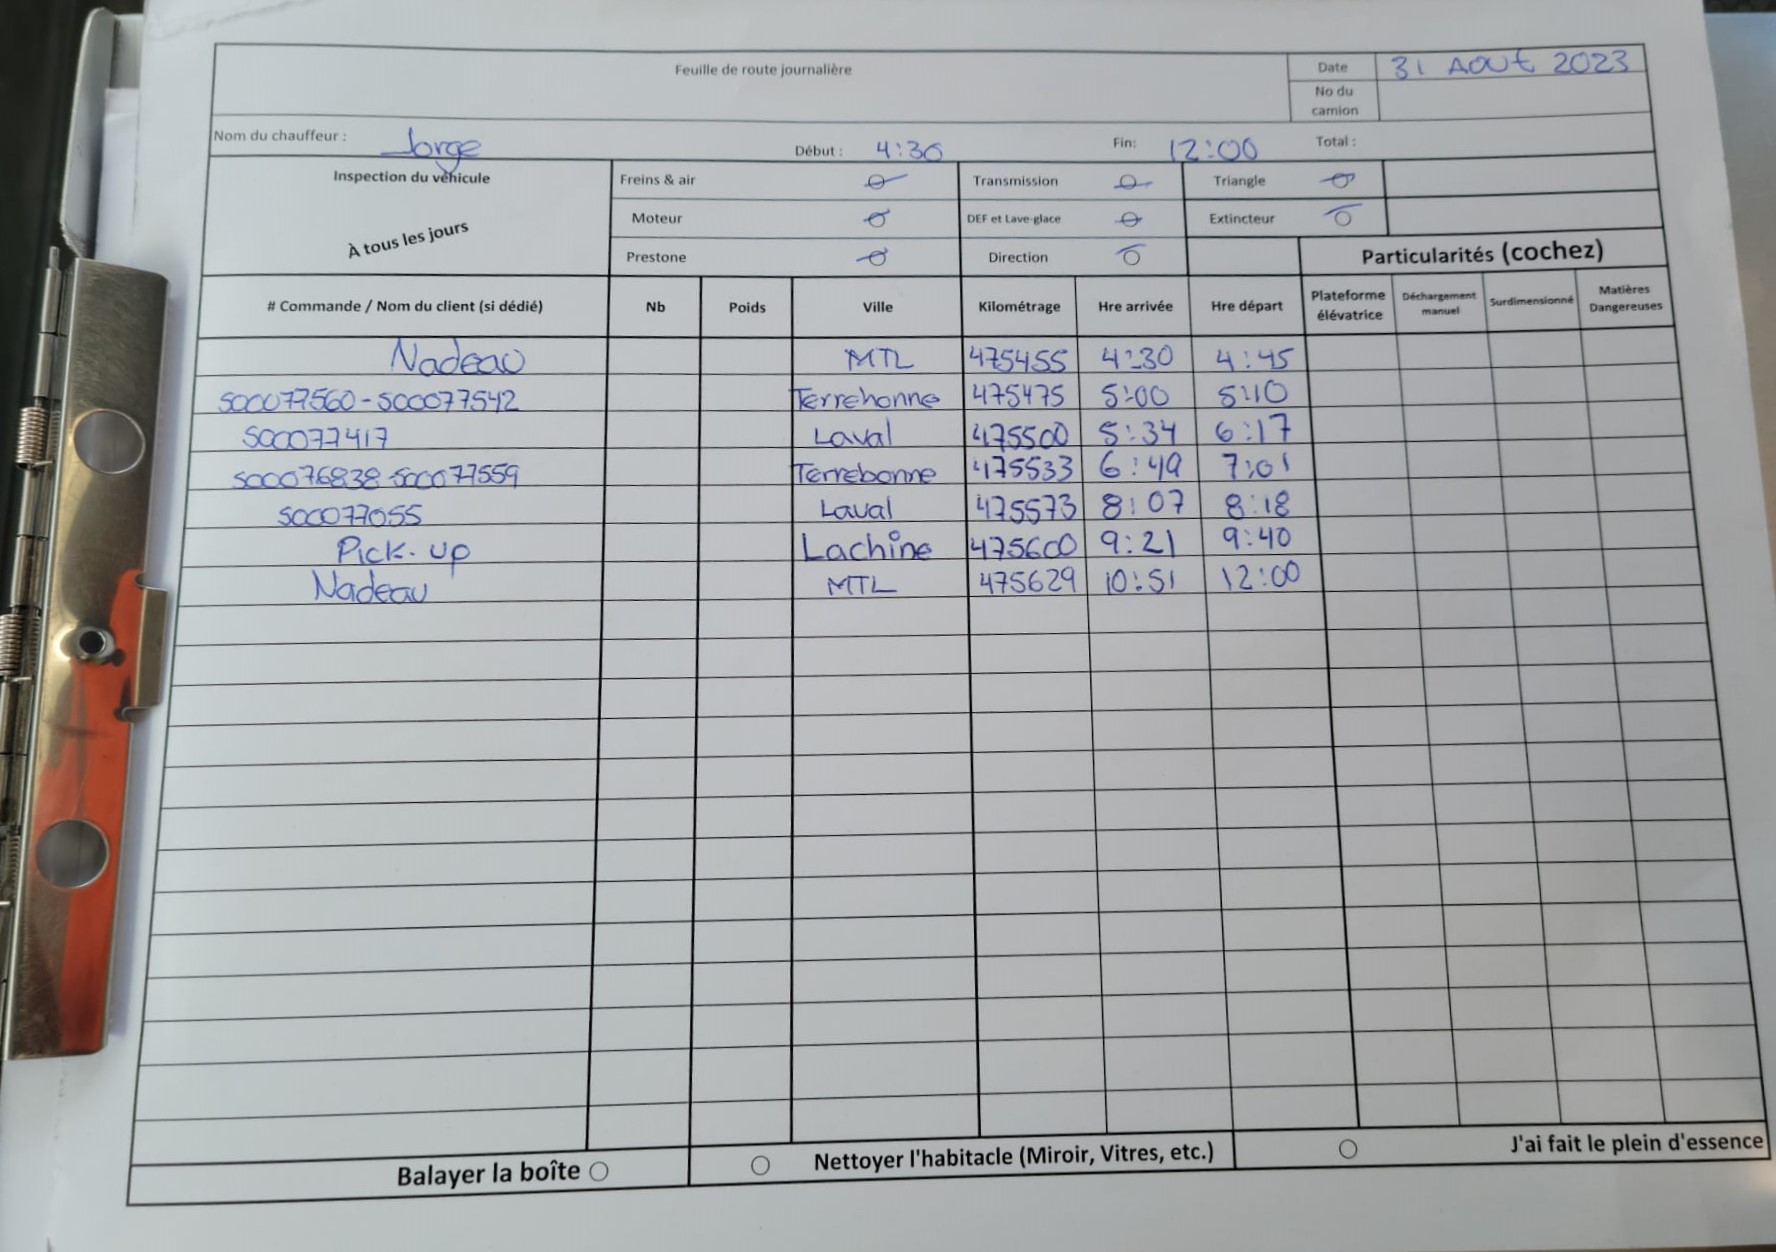 Feuille de route journalière
Date 31 AOUt 2023
No du camion
Nom du chauffeur : Jorge Début : 4:30 Fin: 12:00 Total :
Inspection du véhicule
À tous les jours
Freins & air Transmission Triangle
Moteur DEF et Lave-glace Extincteur
Prestone Direction
Particularités (cochez)
# Commande / Nom du client (si dédié) Nb Poids Ville Kilométrage Hre arrivée Hre départ Plateforme élévatrice Déchargement manuel Surdimensionné Matières Dangereuses
Nadeau MTL 475455 4:30 4:45
S00077560-S00077542 Terrebonne 475475 5:00 5:10
S00077417 Laval 475500 5:34 6:17
S00076838-S00077559 Terrebonne 475533 6:49 7:01
S00077055 Laval 475573 8:07 8:18
Pick-up Lachine 475600 9:21 9:40
Nadeau MTL 475629 10:51 12:00
Balayer la boîte Nettoyer l'habitacle (Miroir, Vitres, etc.) J'ai fait le plein d'essence